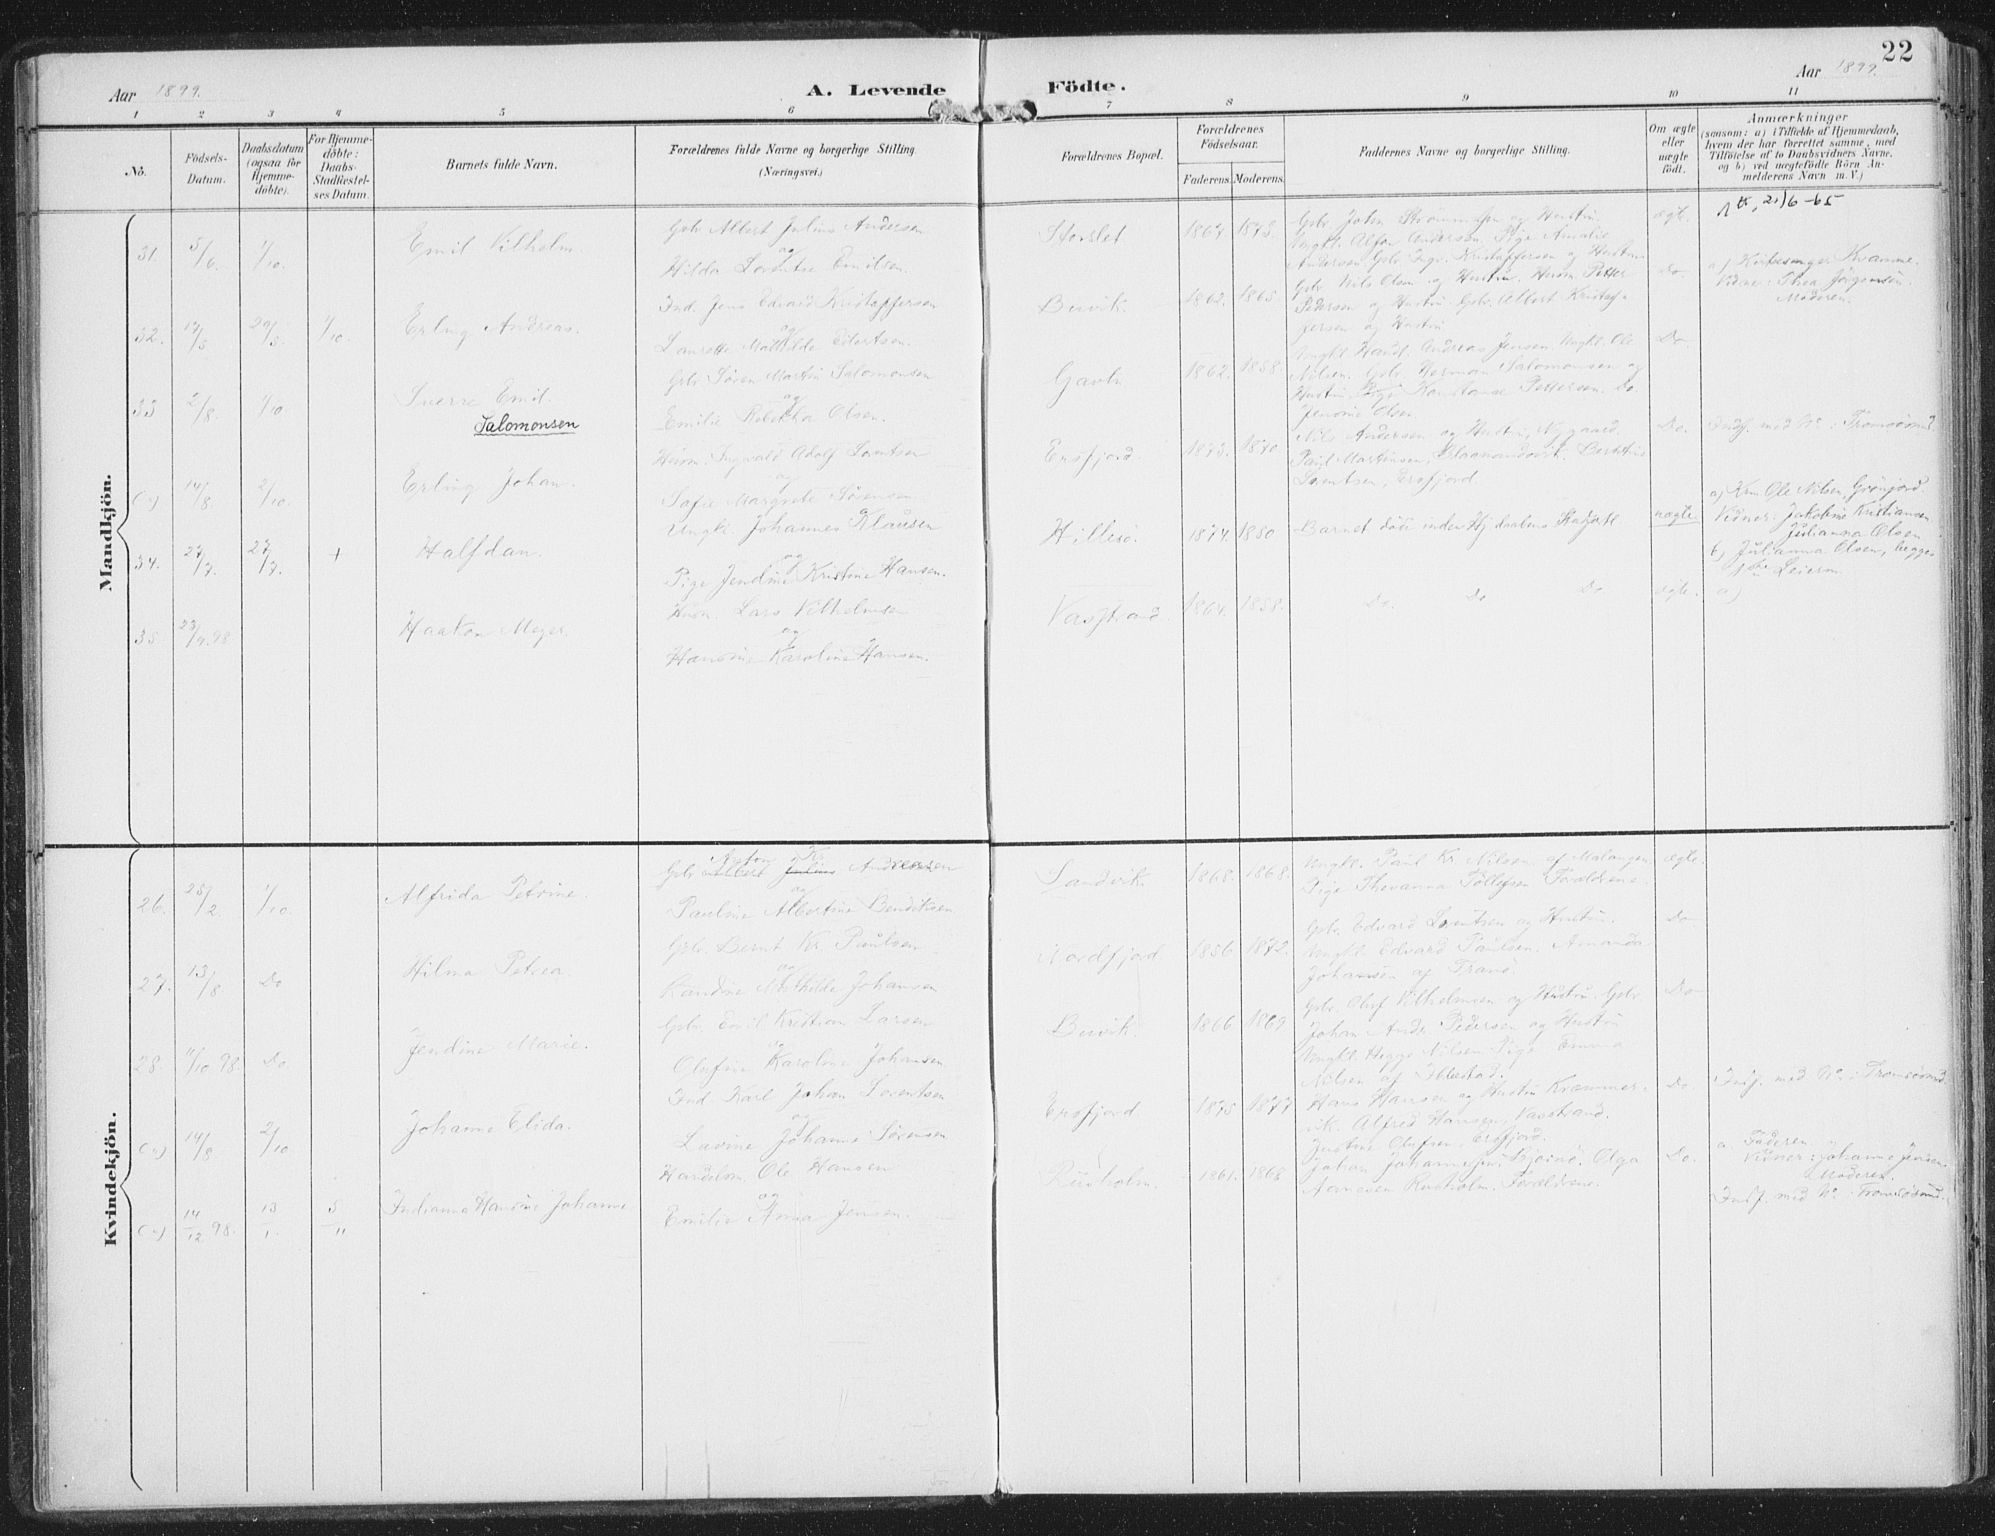 22
Aar 1899.
A. Levende Födte.
Aar 1899.
1 2 3 4 5 6 7 8 9 10 11
No.
Födsels-Datum.
Daabsdatum (ogsaa för Hjemmedöbte).
For Hjemmedöbte: Daabs-Stadfæstelses Datum.
Barnets fulde Navn.
Forældrenes fulde Navne og borgerlige Stilling.
(Næringsvei.)
Forældrenes Bopæl.
Forældrenes Födselsaar.
Faderens. Moderens.
Faddernes Navne og borgerlige Stilling.
Om ægte eller uægte födt.
Anmærkninger
(saasom: a) i Tilfælde af Hjemmedaab,
hvem der har forrettet samme, med
Tilföielse af to Daabsvidners Navne,
og b) ved uægtefödte Börn An-
melderens Navn m. V.)
Mandkjön.
31. 5/6. 1/10. Emil Vilhelm.
Gbr. Albert Julius Andersen
og
Hilda Lorentse Emilsen.
Storslet 1867. 1873.
Gbr. John Strømmesen og Hustru.
Ungkl. Alfon Andersen. Pige Amalie
Andersen. Gbr. Ingv. Kristoffersen og Hustru
ægte.
32. 17/5 29/5. 1/10. Erling Andreas.
Ind. Jens Edvard Kristoffersen
og
Laurette Mathilde Edertsen.
Buvik. 1862. 1865
Gbr. Nils Olsen og Hustru. Husm. Petter
Pedersen og Hustru. Gbr. Albert Kristof-
fersen og Hustru
Do.
a) Kirkesanger Kramme.
Vidne: Thea Jörgensen.
Moderen.
33 2/8. 1/10 Sverre Emil.
Salomonsen
Gbr. Søren Martin Salomonsen
og
Emilie Rebekka Olsen.
Gavln 1862. 1858.
Ungkl. Hauf. Andreas Jensen. Ungkl. Ole
Nilsen. Gbr. Herman Salomonsen og
Hustru. Pige Konstanse Pettersen. Do
Jenoine Olsen.
Do.
(") 14/8 2/10. Erling Johan.
Husm. Ingvald Adolf Lorentsen
og
Sofie Margrete Sørensen
Ersfjord. 1873. 1870
Nils Andersen og Hustru, Nygaard.
Paul Martinsen, Blaamandvik.
Lorentsen, Ersfjord.
Do.
Indf. med No i Tromsösund
34. 27/7. 27/7. + Halfdan.
Ungkl. Johannes Klausen
og
Pige Jendine Kristine Hansen.
Hillesø. 1874. 1880
Barnet döde inden Hj.daabens Stadfæst.
uægte
a) Krm Ole Nilsen, Grönjord.
Vidner: Jakobine Kristiansen
Julianna Olsen
b) Julianna Olsen, begges
1ste Leierm
35 23/9.98 Haakon Meyer.
Husm. Lars Vilhelmsen
og
Hansine Karoline Hansen.
Vasstrand 1864. 1858.
Do. Do Do
ægte.
a)
Kvindekjön.
26. 25/2. 1/10. Alfrida Petrine.
Gbr. Albert Julius Andreasen
og
Pauline Albertine Bendiksen
Sandvik. 1868. 1868.
Ungkl. Paul Kr. Nilsen af Malangen
Pige Thovanna Tollefsen. Forældrene.
ægte.
27. 13/8 Do Hilma Petrea.
Gbr. Bernt Kr. Paulsen
og
Kandine Mathilde Johansen
Nordfjord 1856. 1872.
Gbr. Edvard Lorentsen og Hustru.
Ungkl. Edvard Paulsen. Amanda
Johansen af Tranö.
Do
28. 11/10 98. Do Jendine Marie.
Gbr. Emil Kristian Larsen
og
Olufine Karoline Johansen
Buvik. 1866. 1869
Gbr. Oluf Vilhelmsen og Hustru. Gbr.
Johan Andr. Pedersen og Hustru
Ungkl. Hegge Nilsen. Pige Emma
Nilsen af Ibestad.
Do
(") 14/8 2/10 Johanne Elida.
Ind. Karl Johan Lorentsen
og
Lavine Johanne Sørensen
Ersfjord 1875 1877
Hans Hansen og Hustru Kræmmer-
vik. Alfred Hansen, Vasstrand.
Justine Olufsen, Ersfjord.
Do.
Indf. med No i Tromsösund
(") 14/12 98. 13/1. 5/11 Indianna Hansine Johanne
Handelsm. Ole Hansen
og
Emilie Anna Jensen.
Risholm. 1861. 1868
Johan Johannesen. Olga
Arnesen Risholm. Forældrene.
Do.
a. Faderen
Vidner: Johanne Jensen
Moderen.
Indf. med No i Tromsösund.